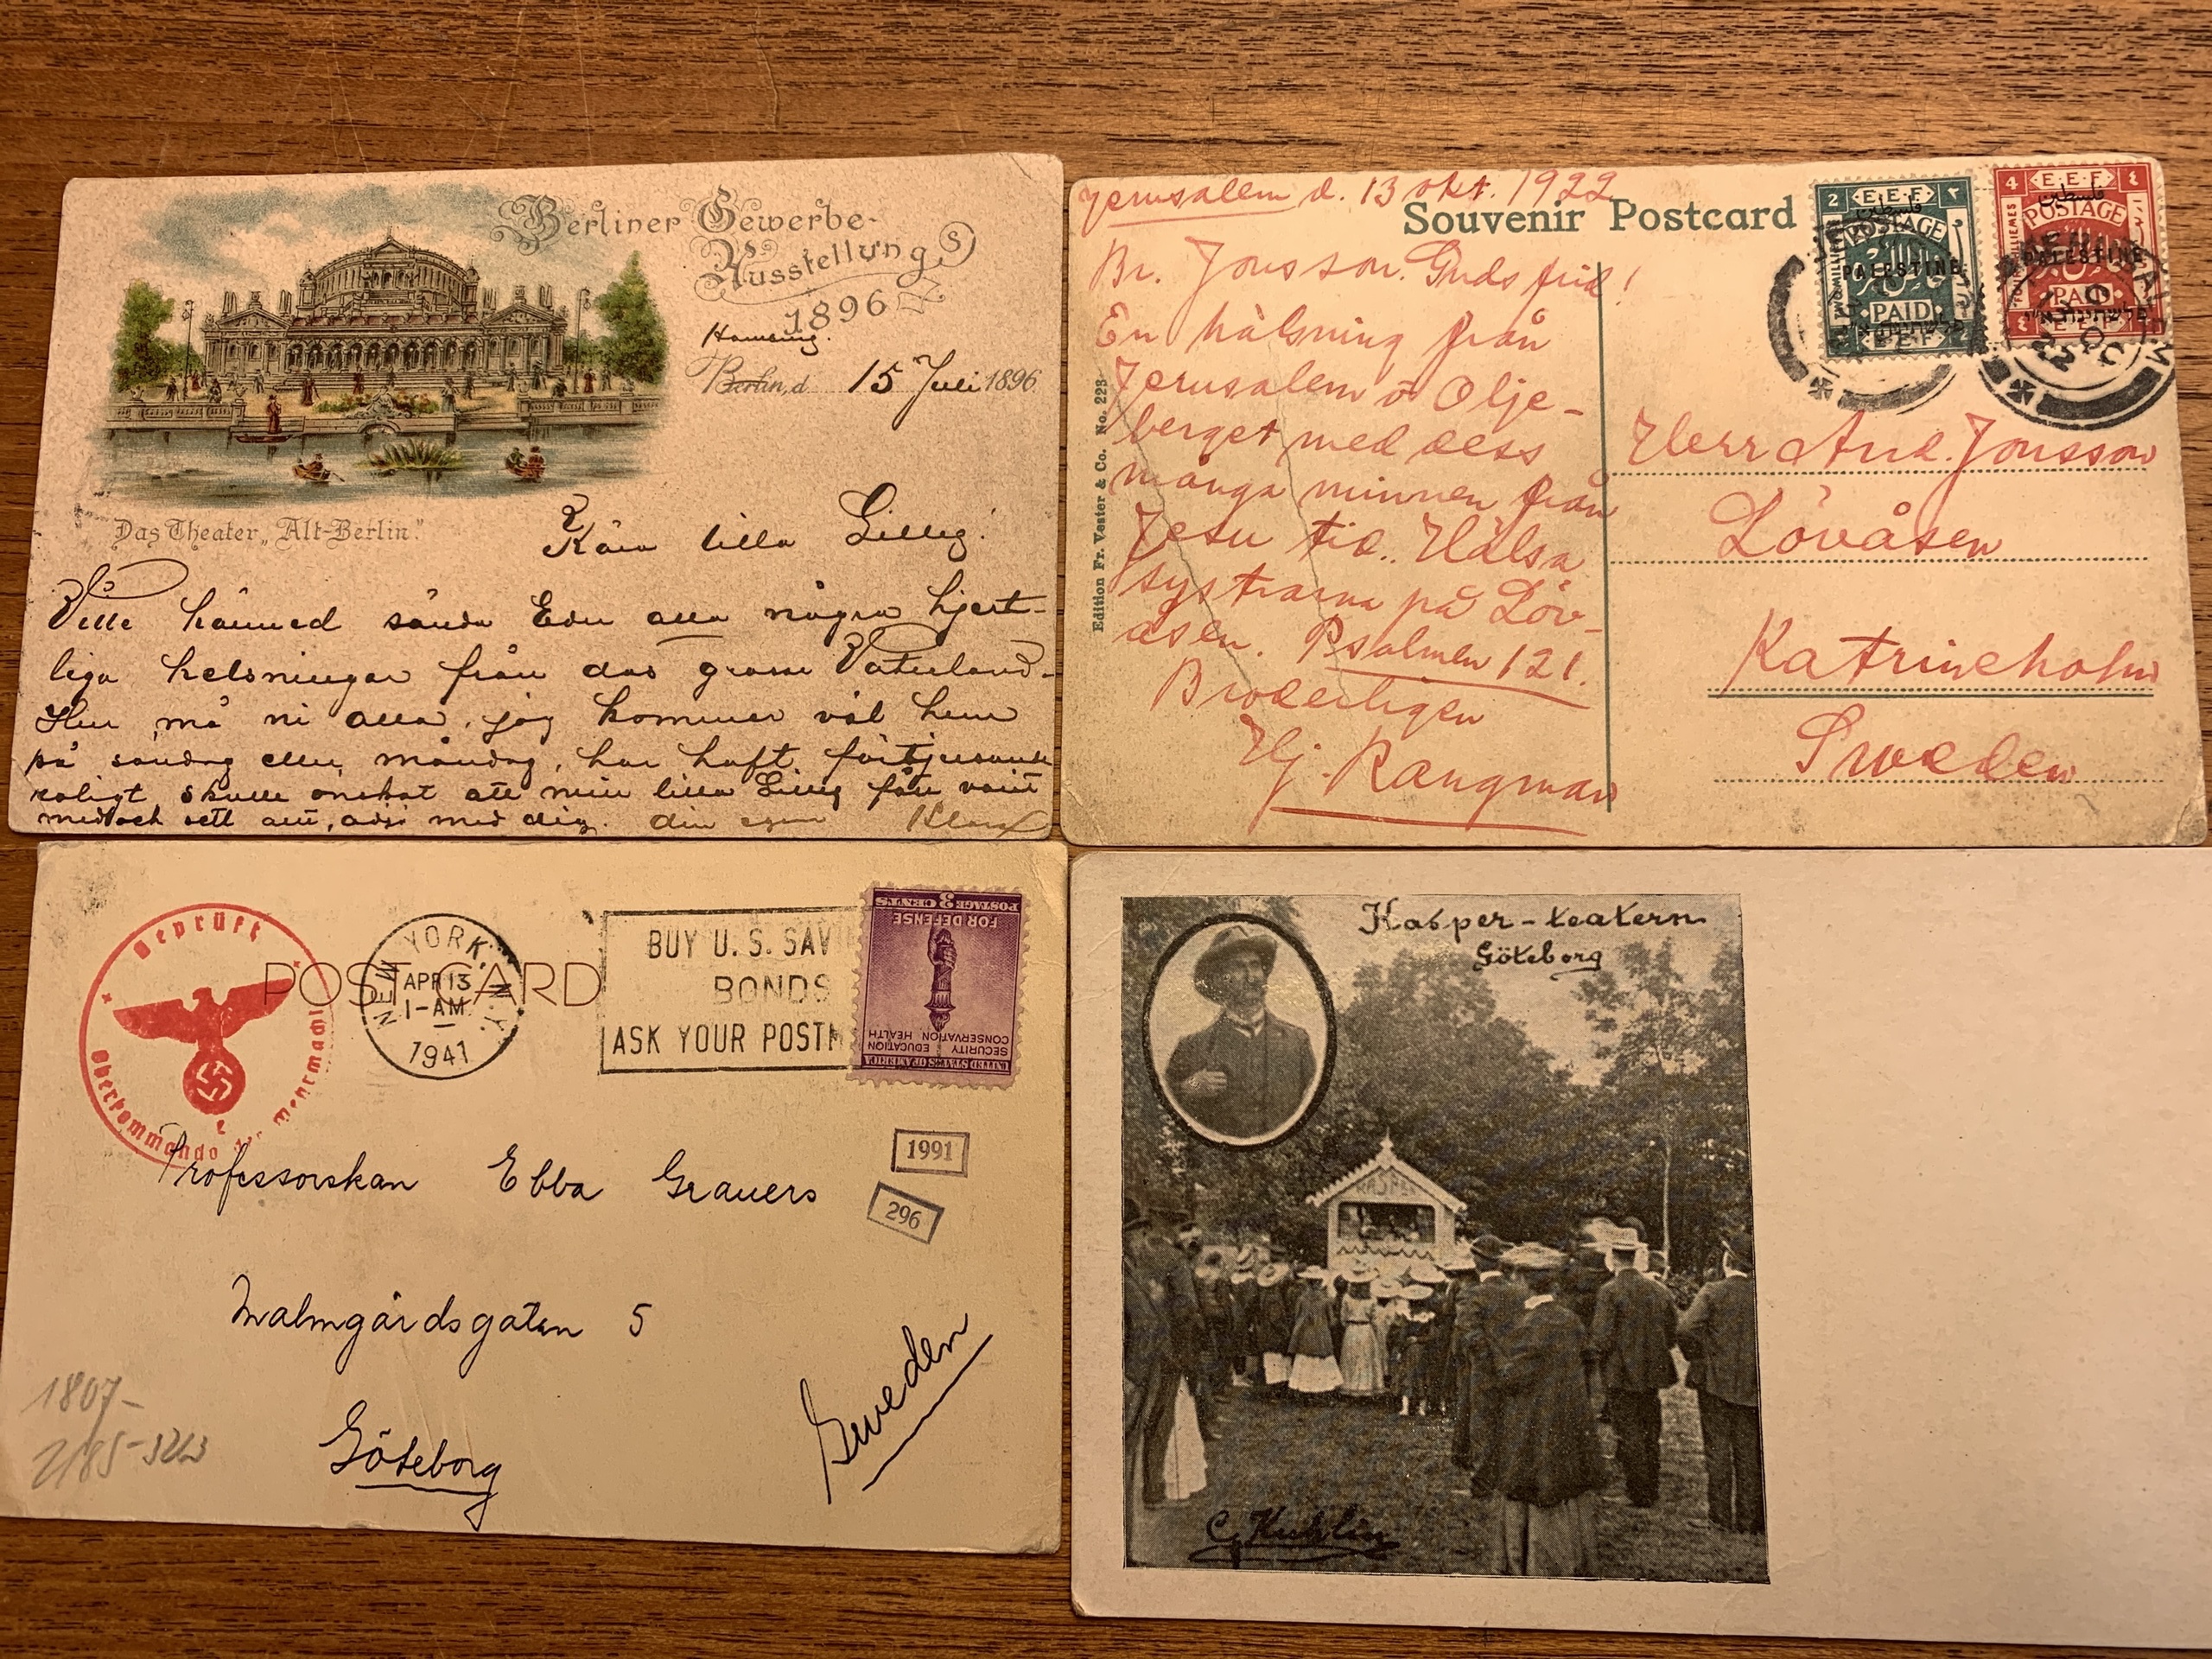 Berliner Gewerbe-
Ausstellung
1896
Berlin, d. 15 Juli 1896
Das Theater „Alt-Berlin".
Kära lilla
Ville härmed sända Eder alla några hjert-
liga helsningar från das grosse Vaterland.
Hur må ni alla, jag kommer väl hem
på söndag eller måndag, har haft förtjusande
roligt, skulle önskat att min lilla fått varit
med och sett allt, adjö med dig. din egen
Jerusalem d. 13 okt. 1922
Souvenir Postcard
Br. Jonsson. Guds frid!
En hälsning från
Jerusalem o Olje-
berget med dess
många minnen från
Jesu tid. Hälsa
systrarna på Löv-
åsen. Psalmen 121.
Broderligen
Hj. Rangman
Edition Fr. Vester & Co. No. 223
2 E.E.F ٢
POSTAGE
PALESTINE
PAID
E.E.F
4 E.E.F ٤
POSTAGE
PALESTINE
PAID
E.E.F
Herr And. Jonsson
Lövåsen
Katrineholm
Sweden
Geprüft
Oberkommando der Wehrmacht
POST CARD
NEW YORK, N.Y.
APR 13
1-AM
1941
BUY U. S. SAV
BONDS
ASK YOUR POSTM
UNITED STATES OF AMERICA
SECURITY EDUCATION
CONSERVATION HEALTH
FOR DEFENSE
POSTAGE 3 CENTS
1991
296
Professorskan Ebba Grauers
Malmgårdsgatan 5
Göteborg
Sweden
1807-
2185-3213
Kasper-teatern
Göteborg
KASPER
C Kuhlin